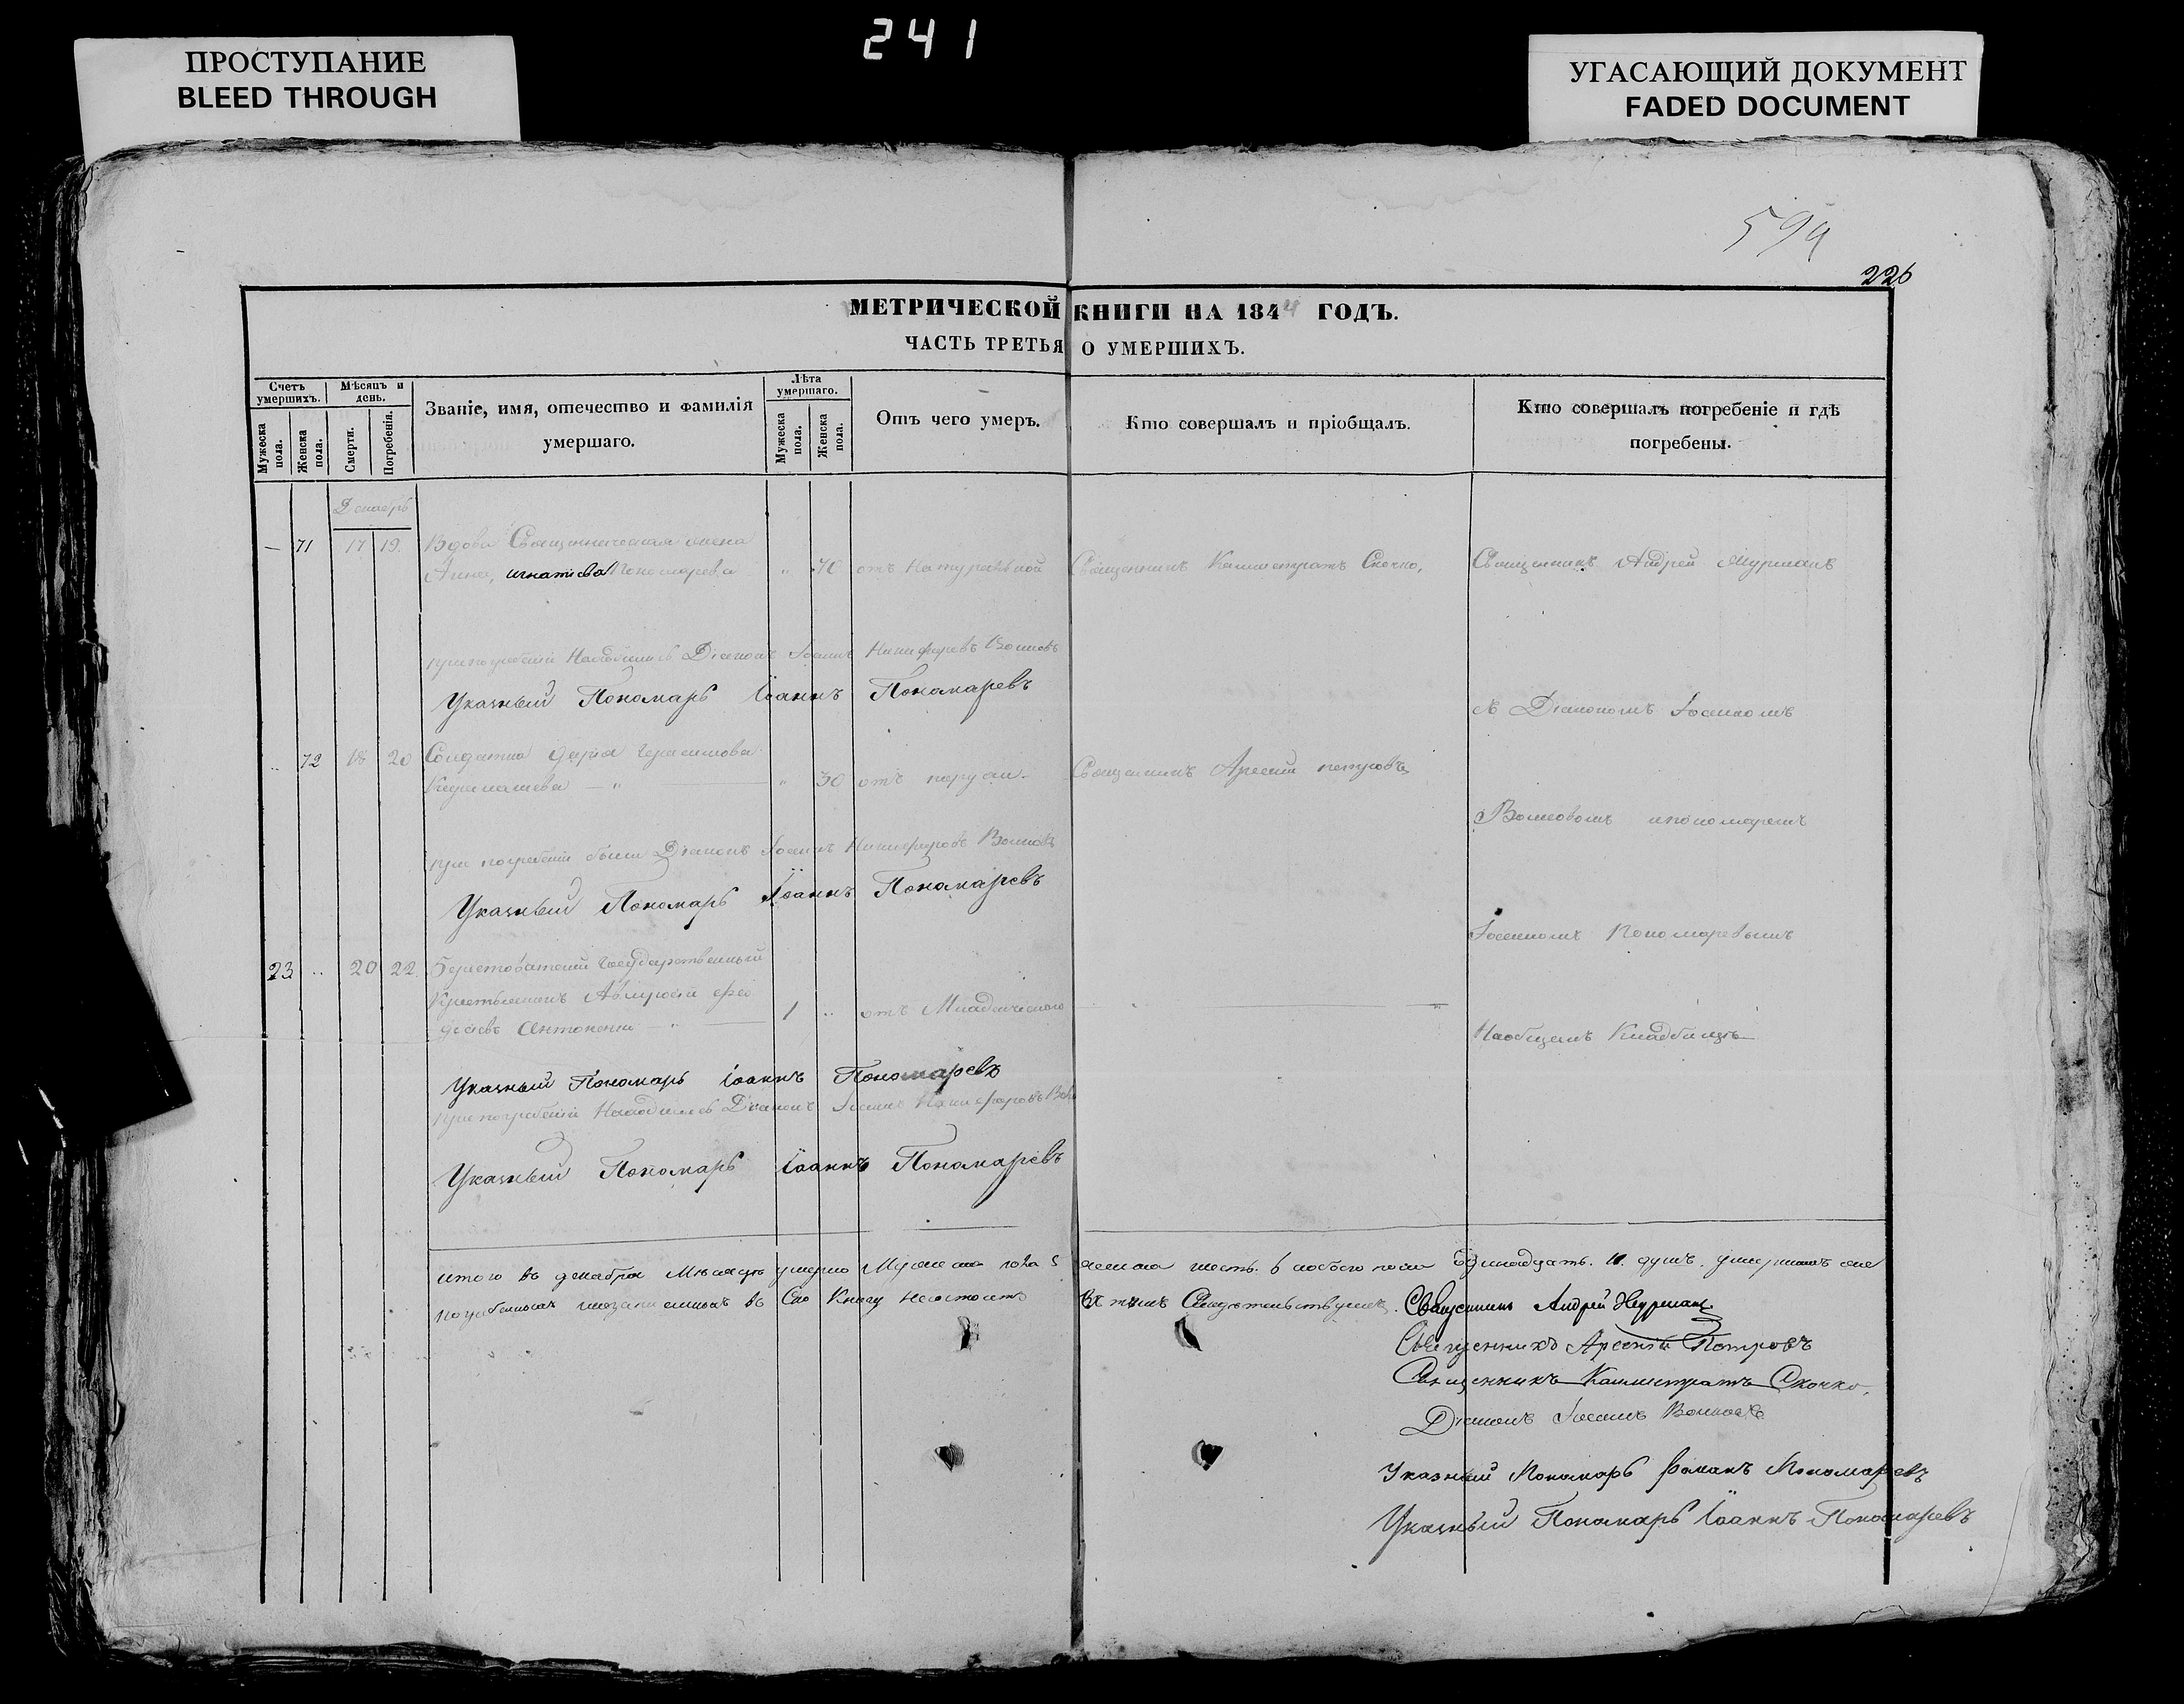 241
ПРОСТУПАНИЕ
BLEED THROUGH
УГАСАЮЩИЙ ДОКУМЕНТ
FADED DOCUMENT
594
226
МЕТРИЧЕСКОЙ КНИГИ НА 1844 ГОДЪ.
ЧАСТЬ ТРЕТЬЯ О УМЕРШИХЪ.
Счетъ умершихъ.
Мужеска пола.
Женска пола.
Мѣсяцъ и день.
Смерти.
Погребенія.
Званіе, имя, отечество и фамилія умершаго.
Лѣта умершаго.
Мужеска пола.
Женска пола.
Отъ чего умеръ.
Кто совершалъ и пріобщалъ.
Кто совершалъ погребеніе и гдѣ погребены.
Декабрь
— 71 17 19. Вдова Священническая жена
Анна, игнатіева Пономарева " 70 отъ Натуральной Священникъ Каллистратъ Скочко, Священникъ Андрей
при погребеніи Находились Діаконъ Іоаннъ Никифоровъ Волковъ
Указный Пономарь Іоаннъ Пономаревъ
съ Діакономъ Іоанномъ
72 18 20 Солдатка Дарья Герасимова
" 30 отъ Священникъ Арсеній петровъ
Волковомъ ипономаремъ
при погребеніи были Діаконъ Іоаннъ Никифоровъ Волковъ
Указный Пономарь Іоаннъ Пономаревъ
Іоанномъ Пономаревымъ
23 .. 20 22. Государственный
Крестьянинъ Амвросій
Антоненко 1 .. отъ Младенческого
Наобщемъ Кладбищѣ
Указный Пономарь Іоаннъ Пономаревъ
при погребеніи Находились Діаконъ Іоаннъ Никифоровъ
Указный Пономарь Іоаннъ Пономаревъ
итого въ декабрѣ Мѣсяцѣ умерло Мужеска пола 5 женска шесть. 6 обоего пола Одинадцать. 11. душъ.
въ Сію Книгу несостоитъ Въ томъ Свидѣтельствуемъ. Священникъ Андрей
Священникъ Арсеній Петровъ
Священникъ Каллистратъ Скочко.
Діаконъ Іоаннъ Волковъ
Указный Пономарь Романъ Пономаревъ
Указный Пономарь Іоаннъ Пономаревъ